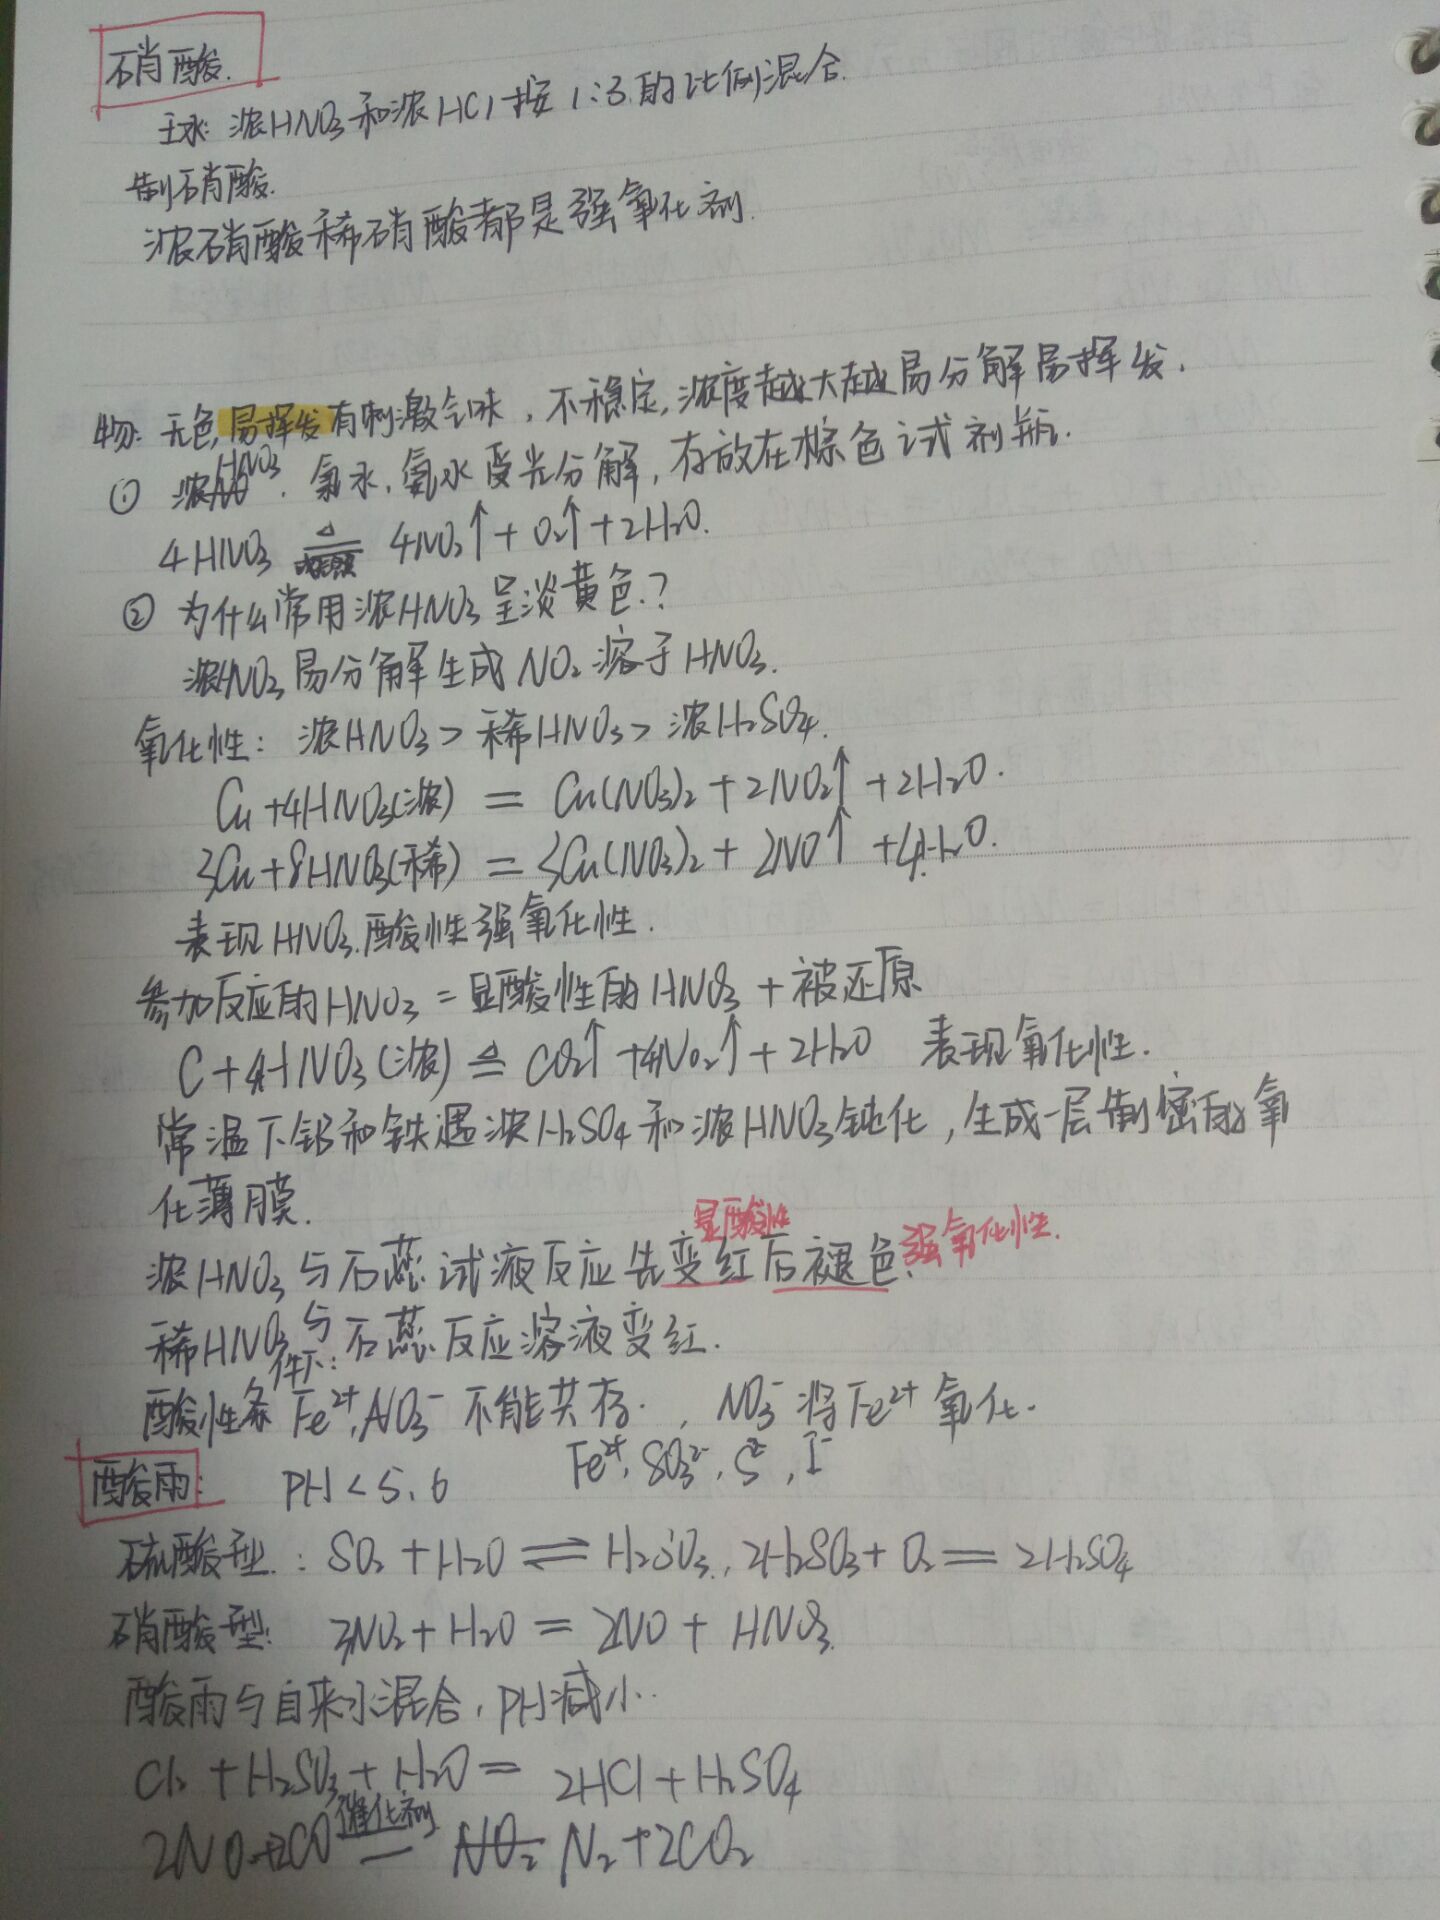 硝酸.
王水: 浓HNO₃和浓HCl按1:3.的比例混合.
制硝酸.
浓硝酸稀硝酸都是强氧化剂.
物: 无色,易挥发有刺激气味,不稳定,浓度越大越易分解易挥发.
① 浓HNO₃.氯水,氨水受光分解,存放在棕色试剂瓶.
4HNO₃ ≜ 4NO₂↑+O₂↑+2H₂O.
② 为什么常用浓HNO₃呈淡黄色.?
浓HNO₃易分解生成NO₂溶于HNO₃.
氧化性: 浓HNO₃>稀HNO₃>浓H₂SO₄.
Cu+4HNO₃(浓) = Cu(NO₃)₂+2NO₂↑+2H₂O.
3Cu+8HNO₃(稀) = 3Cu(NO₃)₂+2NO↑+4H₂O.
表现HNO₃.酸性强氧化性.
参加反应的HNO₃=显酸性的HNO₃+被还原
C+4HNO₃(浓) ≜ CO₂↑+4NO₂↑+2H₂O 表现氧化性.
常温下铝和铁遇浓H₂SO₄和浓HNO₃钝化,生成一层制密的氧
化薄膜.
显酸性
浓HNO₃与石蕊试液反应先变红后褪色.强氧化性.
稀HNO₃与石蕊反应溶液变红.
酸性条件下: Fe²⁺,NO₃⁻不能共存.,NO₃⁻将Fe²⁺氧化.
Fe²⁺,SO₃²⁻,S²⁻,I⁻
酸雨: PH<5.6
硫酸型.: SO₂+H₂O⇌H₂SO₃.,2H₂SO₃+O₂=2H₂SO₄
硝酸型: 3NO₂+H₂O=2NO+HNO₃.
酸雨与自来水混合,PH减小.
Cl₂+H₂SO₃+H₂O=2HCl+H₂SO₄
催化剂
2NO+2CO = N₂+2CO₂